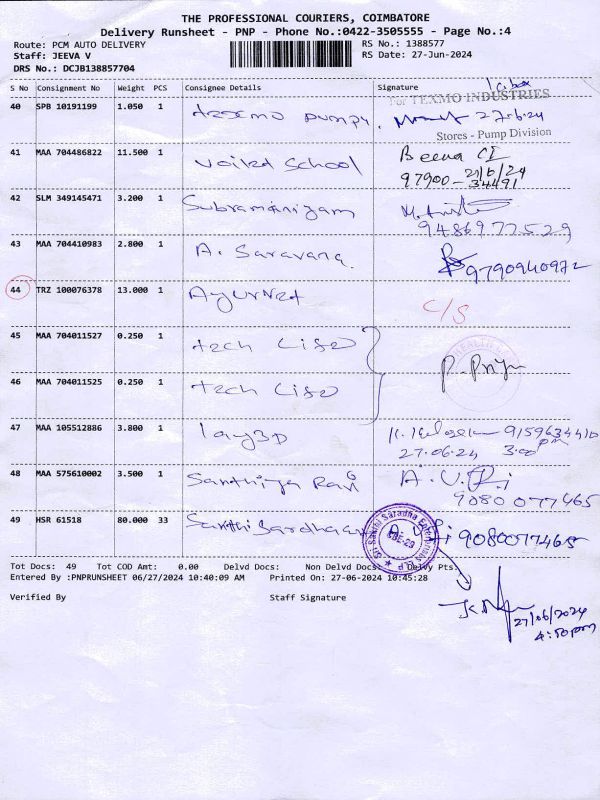 THE PROFESSIONAL COURIERS, COIMBATORE
Delivery Runsheet - PNP - Phone No.:0422-3505555 - Page No.:4
Route: PCM AUTO DELIVERY RS No.: 1388577
Staff: JEEVA V RS Date: 27-Jun-2024
DRS No.: DCJB138857704
S No Consignment No Weight PCS Consignee Details Signature
For TEXMO INDUSTRIES
40 SPB 10191199 1.050 1 27.6.24
Stores - Pump Division
41 MAA 704486822 11.500 1 School Beena CI
27/6/24
97900-34491
42 SLM 349145471 3.200 1 Subramaniyam
9486977529
43 MAA 704410983 2.800 1 A. Saravana 9790940972
44 TRZ 100076378 13.000 1 C/S
45 MAA 704011527 0.250 1 tech Life
P. Priya
46 MAA 704011525 0.250 1 tech Life
47 MAA 105512886 3.800 1 lay3D 9159634410
27.06.24 3:00 pm
48 MAA 575610002 3.500 1 Santhiya Rani
9080077465
49 HSR 61518 80.000 33 9080077465
Tot Docs: 49 Tot COD Amt: 0.00 Delvd Docs: Non Delvd Docs: Delvy Pts:
Entered By :PNPRUNSHEET 06/27/2024 10:40:09 AM Printed On: 27-06-2024 10:45:28
Verified By Staff Signature
27/06/2024
4:50pm